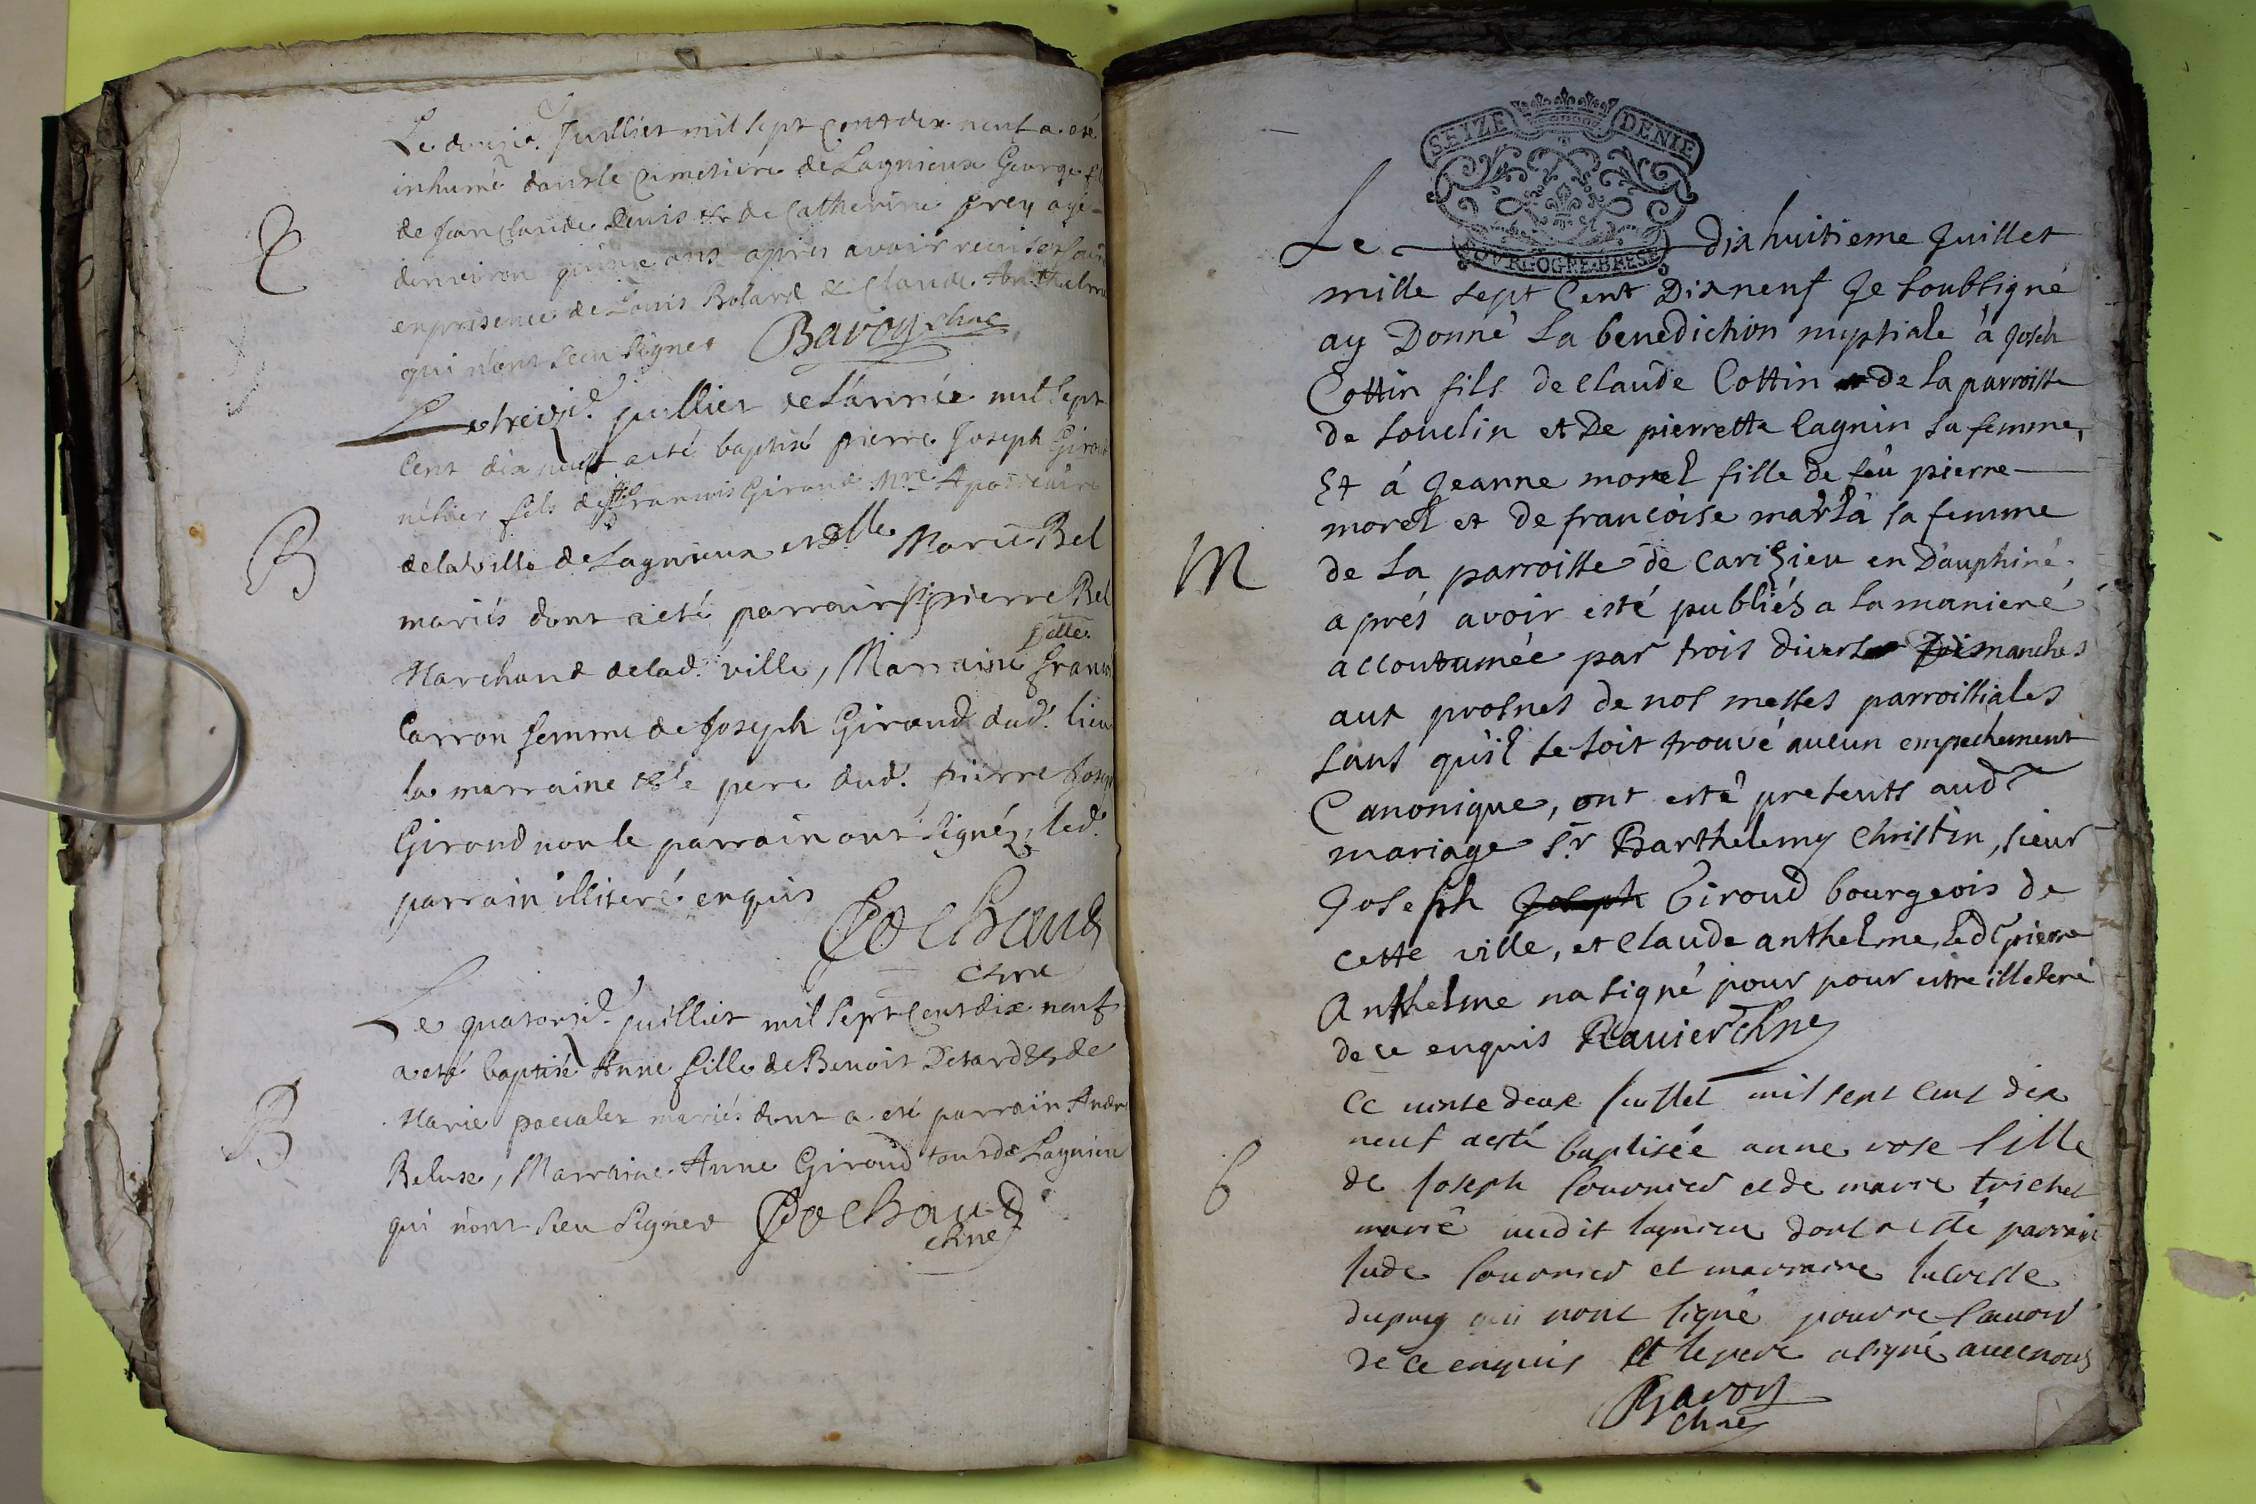 Le douzie. Juilliet mil sept cent dix neuf a eté
inhumé dans le Cimetiere de Lagnieux George
de Jean Claude Denis & de Catherine prey agé
denviron quinze ans apres avoir receu
en presence de Louis Bolard & Claude Anthelme
qui n'ont sceu signer Bavoy chne
E
Le treizie. juilliet de l'année mil sept
cent dix neuf a eté baptisé pierre Joseph Giroud
fils de Sr francois Giroud Mre Apoticaire
B
de la ville de Lagnieux et dlle Marie Bel
mariés dont a eté parrain Sr pierre Bel
Marchand de lad. ville, Marraine delle
Carron femme de Joseph Giroud dud. lieu
la marraine & le pere dud. pierre Joseph
Giroud non le parrain ont signéz, led.
parrain illiteré enquis
Cochand
chne
Le quatorzie. juilliet mil sept cent dix neuf
a eté baptisé Anne fille de Benoit Detard & de
B
Marie pacalet mariés dont a eté parrain
Beluse, Marraine Anne Giroud tous de Lagnieu
qui n'ont sceu signer Cochaud
chne
SEIZE DENIE
BOURGOGNE BRESSE
Le dix huitieme Juillet
mille sept Cent Dix neuf Je soubsigné
ay Donné La benediction nuptiale à Joseh
Cottin fils de Claude Cottin de la parroisse
de Souclin et De pierrette Cagnin sa femme,
Et à Jeanne morel fille de feu pierre
morel et de francoise sa femme
M
de La parroisse de Carizieu en Dauphiné.
aprés avoir esté publiés a la maniere
accoutumée par trois divers Dimanches
aux prosnes de nos messes parroissiales
sans qu'il se soit trouvé aucun empechement
Canonique, ont esté presents aud
mariage Sr Barthelemy Christin, sieur
Joseph Joseph Giroud bourgeois de
cette ville, et Claude anthelme, led pierre
Anthelme na signé pour pour estre illeteré
de ce enquis Ravier chne
Ce vinte deux Juillet mil sept cent dix
neuf a esté baptisée anne rose fille
6
de Joseph fournier et de marie trichet
marié dont a esté parrain
fournier et marraine
dupuy qui nont signé pour ne scauoir
de ce enquis et le pere a signé auec nous
Bavoy
chne